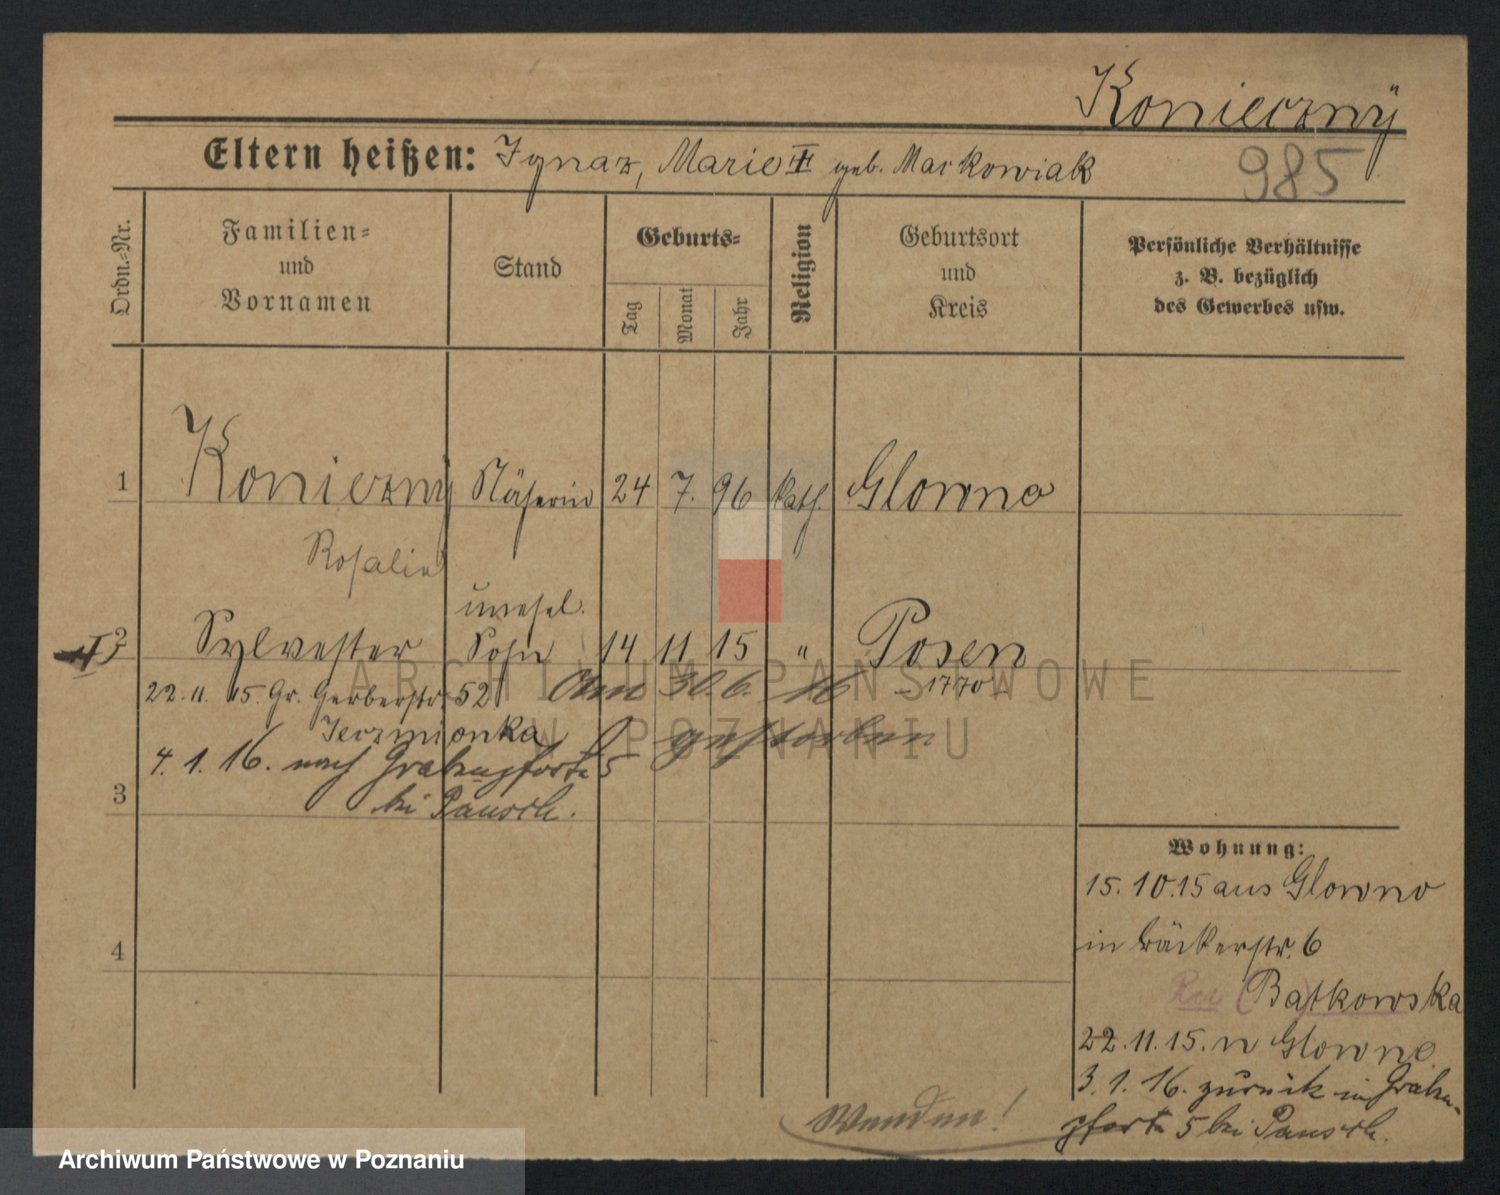 Konieczny
Eltern heißen: Ignaz, Marie III geb. Markowiak
985
Ordn.-Nr.
Familien-
und
Vornamen
Stand
Geburts-
Tag
Monat
Jahr
Religion
Geburtsort
und
Kreis
Persönliche Verhältnisse
z. B. bezüglich
des Gewerbes usw.
1 Konieczny Näherin 24 7. 96 kath. Glowno
Rosalie
unehel.
2 Sylvester Sohn 14 11 15 " Posen
22.11.15. Gr. Gerberstr. 52 Am 30.6. 16 1770
Jerzmionka gestorben
4.1.16. nach Grabenpforte 5
bei Pausch.
3
4
Wohnung:
15.10.15 aus Glowno
in Bäckerstr. 6
(Batkowska
22.11.15. n Glowno
3.1.16. zurück in Graben-
pforte 5 bei Pausch.
Wenden!
ARCHIWUM PAŃSTWOWE
W POZNANIU
Archiwum Państwowe w Poznaniu